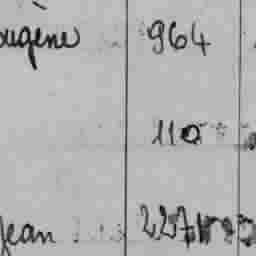 Eugène 964
110
Jean 227